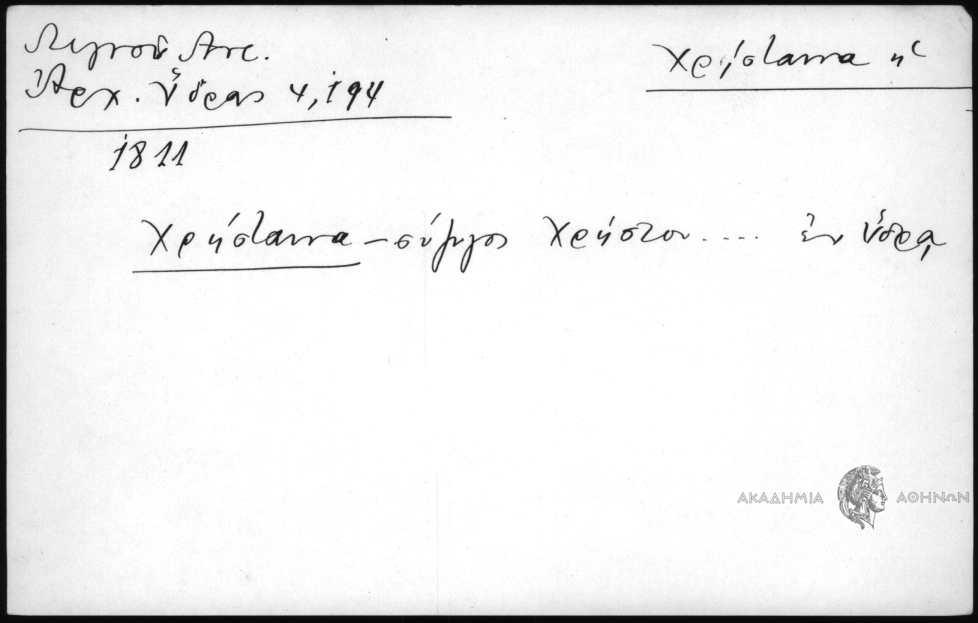 Λιγνοῦ Ἀντ.
Ἀρχ. Ὕδρας 4, 194
Χρήσταινα ἡ
1811
Χρήσταινα – σύζυγος Χρήστου .... ἐν Ὕδρᾳ
ΑΚΑΔΗΜΙΑ ΑΘΗΝΩΝ